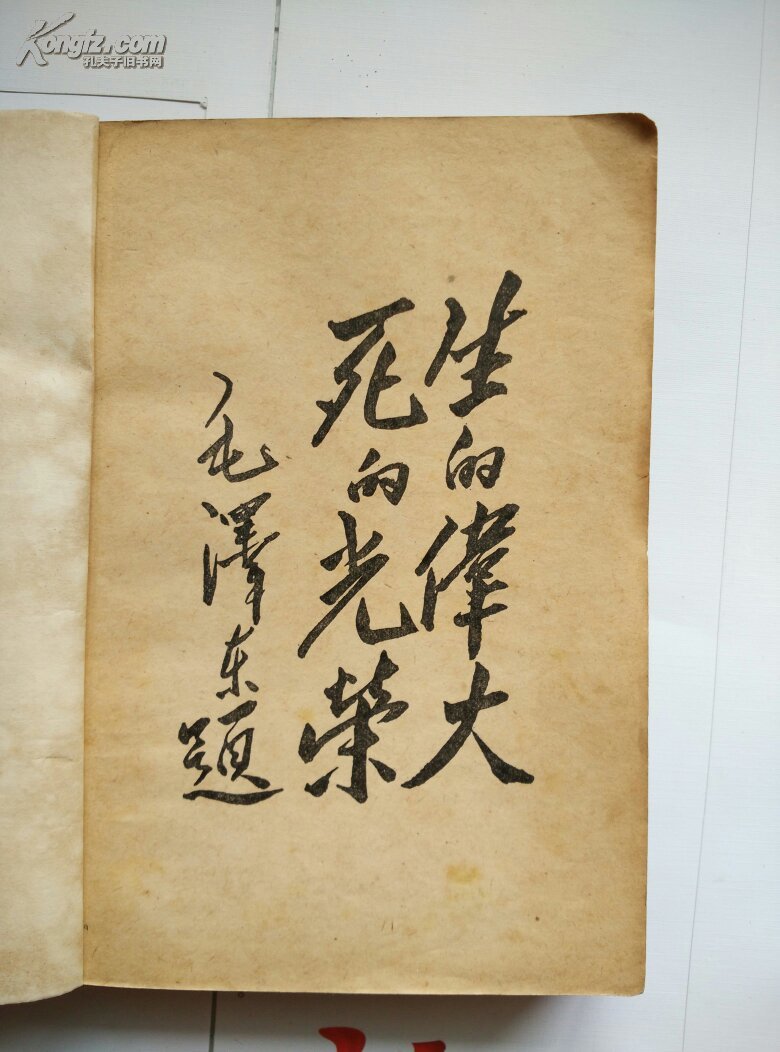 Kongfz.com
孔夫子旧书网
生的偉大
死的光榮
毛澤东題